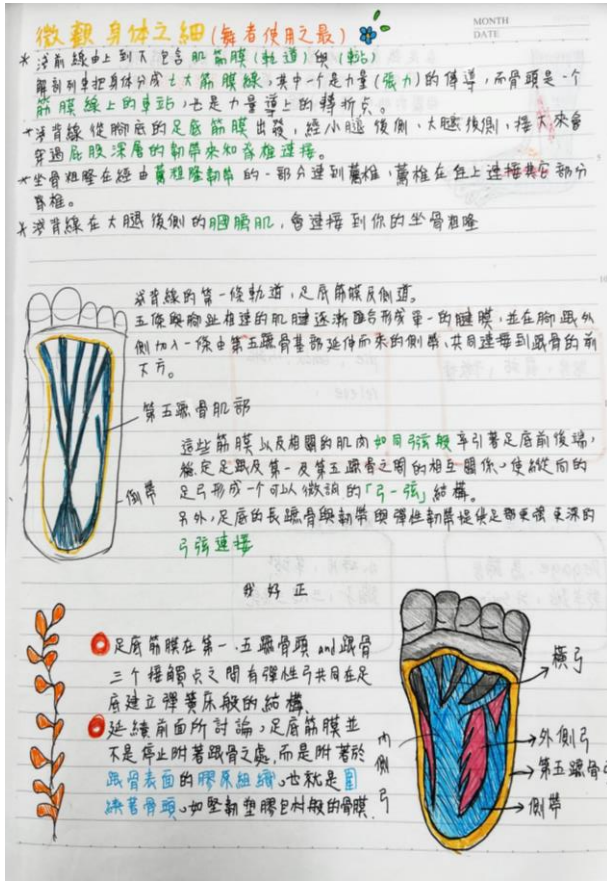 微觀身体之細(舞者使用之最)
MONTH
DATE
* 淺前線由上到下包含肌筋膜(軌道)與(車站)
解剖列車把身体分成七大筋膜線,其中一个是力量(張力)的傳導,而骨頭是一个
筋膜線上的車站,也是力量導上的轉折点。
* 淺背線從腳底的足底筋膜出發,經小腿後側、大腿後側,接下來會
穿過屁股深層的韌帶來和脊椎連接。
* 坐骨粗隆在經由薦粗隆韌帶的一部分連到薦椎,薦椎在往上連接其它部分
脊椎。
* 淺背線在大腿後側的膕膀肌,會連接到你的坐骨粗隆
淺背線的第一條軌道,足底筋膜及側道。
五條與腳趾相連的肌腱逐漸融合形成單一的腱膜,並在腳蹠外
側加入一條由第五蹠骨基部延伸而來的側帶,共同連接到跟骨的前
下方。
第五蹠骨肌部
側帶
這些筋膜以及相關的肌肉如同弓弦般牽引著足底前後端,
穩定足跟及第一及第五蹠骨之間的相互關係,使縱向的
足弓形成一个可以微調的「弓-弦」結構。
另外,足底的長蹠骨與韌帶與彈性韌帶提供足部更強更深的
弓弦連接
我好正
足底筋膜在第一.五蹠骨頭 and 跟骨
三个接觸点之間有彈性弓共同在足
底建立彈簧床般的結構.
延續前面所討論,足底筋膜並
不是停止附著跟骨之處,而是附著於
跟骨表面的膠原組織,也就是圍
繞著骨頭,如堅韌塑膠包材般的骨膜.
橫弓
內側弓
外側弓
第五蹠骨
側帶